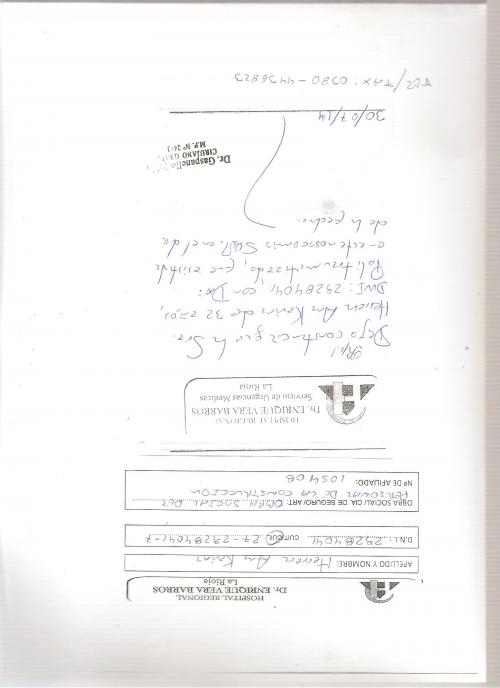 HOSPITAL REGIONAL
Dr. ENRIQUE VERA BARROS
La Rioja
APELLIDO Y NOMBRE: Herrera Ana Karina
D.N.I.: 29284041 CUIT/CUIL 27-29284041-7
OBRA SOCIAL/ CIA. DE SEGURO/ ART: OBRA SOCIAL DEL
PERSONAL DE LA CONSTRUCCION
Nº DE AFILIADO: 105408
HOSPITAL REGIONAL
Dr. ENRIQUE VERA BARROS
Servicio de Urgencias Medicas
La Rioja
Rp/
Dejo constancia que la Sra.
Herrera Ana Karina de 32 años,
DNI: 29284041, con Dx:
Politraumatizado, que asiste
a este nosocomio en el dia
de la fecha.
Dr. Gaspanello
CIRUJANO GRAL.
M.P. Nº 2413
30/07/14
TEL/FAX: 0380-4456823